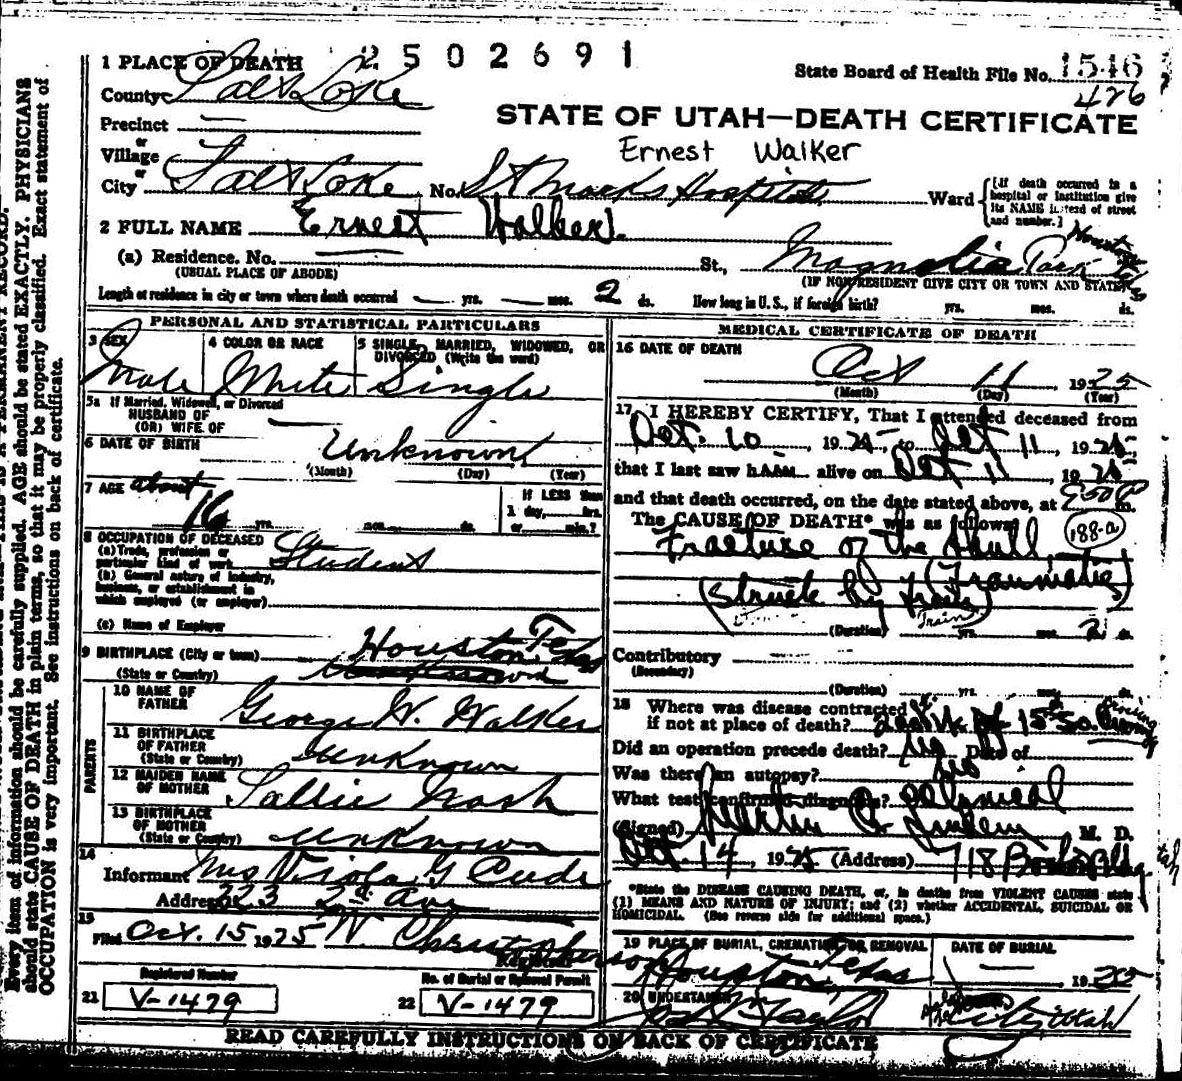 2502691
1 PLACE OF DEATH
State Board of Health File No. 1546
426
County Salt Lake
STATE OF UTAH—DEATH CERTIFICATE
Precinct —
Ernest Walker
or
Village
or
City Salt Lake No. St Marks Hospital Ward
(If death occurred in a hospital or institution give its NAME instead of street and number.)
2 FULL NAME Ernest Walker
(a) Residence. No. St., Magnolia Park Houston Texas
(USUAL PLACE OF ABODE) (IF NON-RESIDENT GIVE CITY OR TOWN AND STATE)
Length of residence in city or town where death occurred — yrs. — mos. 2 ds. How long in U. S., if foreign birth? yrs. mos. ds.
PERSONAL AND STATISTICAL PARTICULARS
3 SEX 4 COLOR OR RACE 5 SINGLE, MARRIED, WIDOWED, OR DIVORCED (Write the word)
Male White Single
5a If Married, Widowed, or Divorced
HUSBAND OF
(OR) WIFE OF —
6 DATE OF BIRTH Unknown
(Month) (Day) (Year)
7 AGE about
16 yrs. mos. ds.
If LESS than 1 day, hrs. or min.?
8 OCCUPATION OF DECEASED
(a) Trade, profession or particular kind of work Student
(b) General nature of industry, business, or establishment in which employed (or employer)
(c) Name of Employer
9 BIRTHPLACE (City or town) Houston Texas
(State or Country)
PARENTS
10 NAME OF FATHER George W. Walker
11 BIRTHPLACE OF FATHER (State or Country) Unknown
12 MAIDEN NAME OF MOTHER Sallie Nash
13 BIRTHPLACE OF MOTHER (State or Country) Unknown
14
Informant Mrs Viola G Cude
Address 223 2nd Ave
15
Filed Oct. 15 1925 W. Christopherson
Registrar
Registered Number No. of Burial or Removal Permit
21 V-1479 22 V-1479
MEDICAL CERTIFICATE OF DEATH
16 DATE OF DEATH
Oct 11, 1925
(Month) (Day) (Year)
17 I HEREBY CERTIFY, That I attended deceased from
Oct. 10 1925 to Oct 11, 1925
that I last saw him alive on Oct 11 1925
and that death occurred, on the date stated above, at 850 P m.
The CAUSE OF DEATH* was as follows:
188-a
Fracture of the Skull
(Traumatic)
(Struck by train)
Train
(Duration) yrs. mos. 2 ds.
Contributory
(Secondary)
(Duration) yrs. mos. ds.
18 Where was disease contracted
if not at place of death? 15th So. Crossing
Did an operation precede death? no Date of
Was there an autopsy? no
What test confirmed diagnosis?
(Signed) M. D.
Oct 14, 1925 (Address) 718 Boston Bldg
*State the DISEASE CAUSING DEATH, or, in deaths from VIOLENT CAUSES state
(1) MEANS AND NATURE OF INJURY; and (2) whether ACCIDENTAL, SUICIDAL OR
HOMICIDAL. (See reverse side for additional space.)
19 PLACE OF BURIAL, CREMATION OR REMOVAL DATE OF BURIAL
Houston, Texas — 1925
20 UNDERTAKER
Taylor City, Utah
READ CAREFULLY INSTRUCTIONS ON BACK OF CERTIFICATE
Every item of information should be carefully supplied. AGE should be stated EXACTLY. PHYSICIANS
should state CAUSE OF DEATH in plain terms, so that it may be properly classified. Exact statement of
OCCUPATION is very important. See instructions on back of certificate.